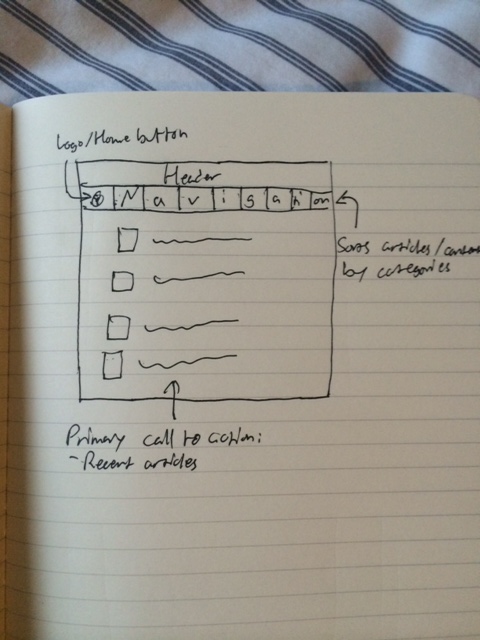 Logo/Home button
Header
N a v i g a ti on
Sorts articles/content
by categories
Primary call to action:
- Recent articles